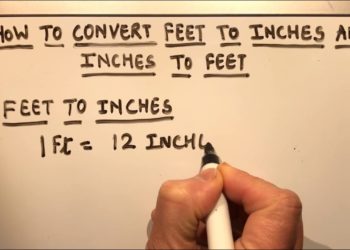 HOW TO CONVERT FEET TO INCHES A
INCHES TO FEET
FEET TO INCHES
1 Ft = 12 INCH